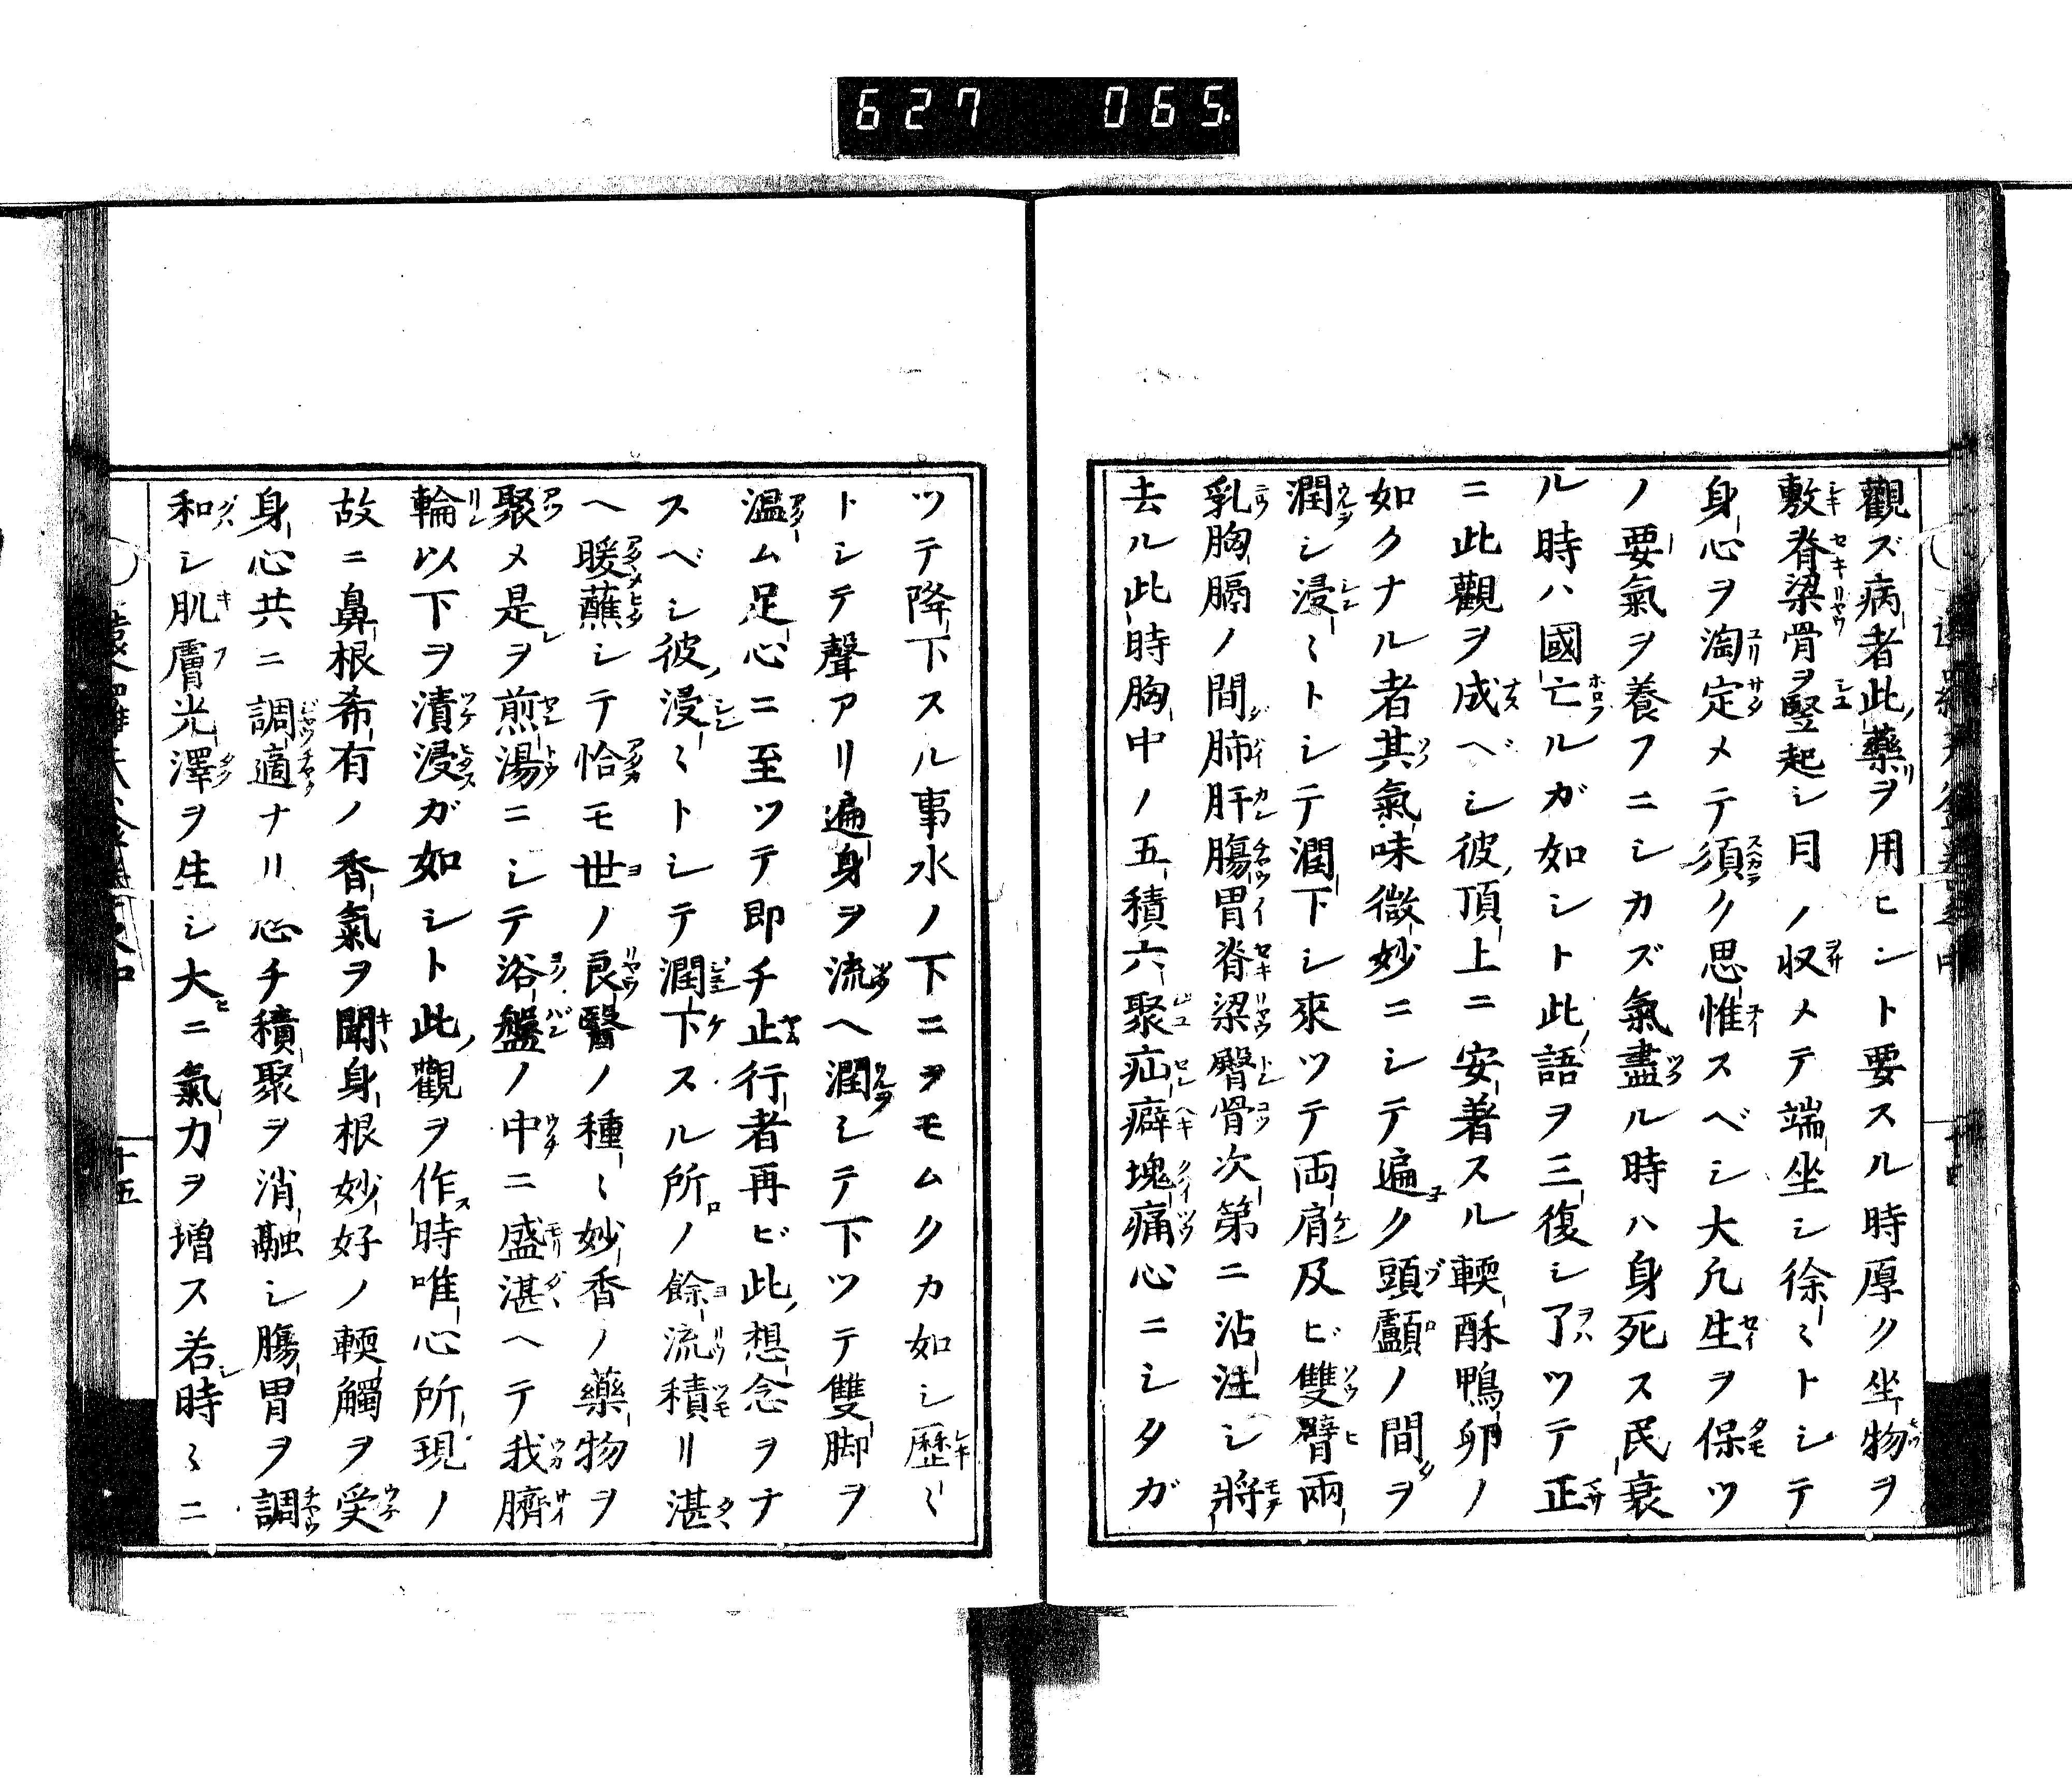 627 065
觀ズ病者此藥ヲ用ヒント要スル時厚ク坐物ヲ
敷脊梁骨ヲ竪起シ目ノ収メテ端坐シ徐〻トシテ
身心ヲ淘定メテ須ク思惟スベシ大凡生ヲ保ツ
ノ要氣ヲ養フニシカズ氣盡ル時ハ身死ス民衰
ル時ハ國亡ルガ如シト此語ヲ三復シ了ツテ正
ニ此觀ヲ成ベシ彼頂上ニ安著スル輭酥鴨卵ノ
如クナル者其氣味微妙ニシテ遍ク頭顱ノ間ヲ
潤シ浸〻トシテ潤下シ來ツテ両肩及ビ雙臂兩
乳胸膈ノ間肺肝膓胃脊梁臀骨次第ニ沾注シ將
去ル此時胸中ノ五積六聚疝癖塊痛心ニシタガ
ツテ降下スル事水ノ下ニヲモムクカ如シ歷〻
トシテ聲アリ遍身ヲ流ヘ潤シテ下ツテ雙脚ヲ
溫ム足心ニ至ツテ即チ止行者再ビ此想念ヲナ
スベシ彼浸〻トシテ潤下スル所ノ餘流積リ湛
ヘ暖蘸シテ恰モ世ノ良醫ノ種〻妙香ノ藥物ヲ
聚メ是ヲ煎湯ニシテ浴盤ノ中ニ盛湛ヘテ我臍
輪以下ヲ漬浸ガ如シト此觀ヲ作時唯心所現ノ
故ニ鼻根希有ノ香氣ヲ聞身根妙好ノ輭觸ヲ受
身心共ニ調適ナリ忽チ積聚ヲ消融シ膓胃ヲ調
和シ肌膚光澤ヲ生シ大ニ氣力ヲ増ス若時〻ニ
十五